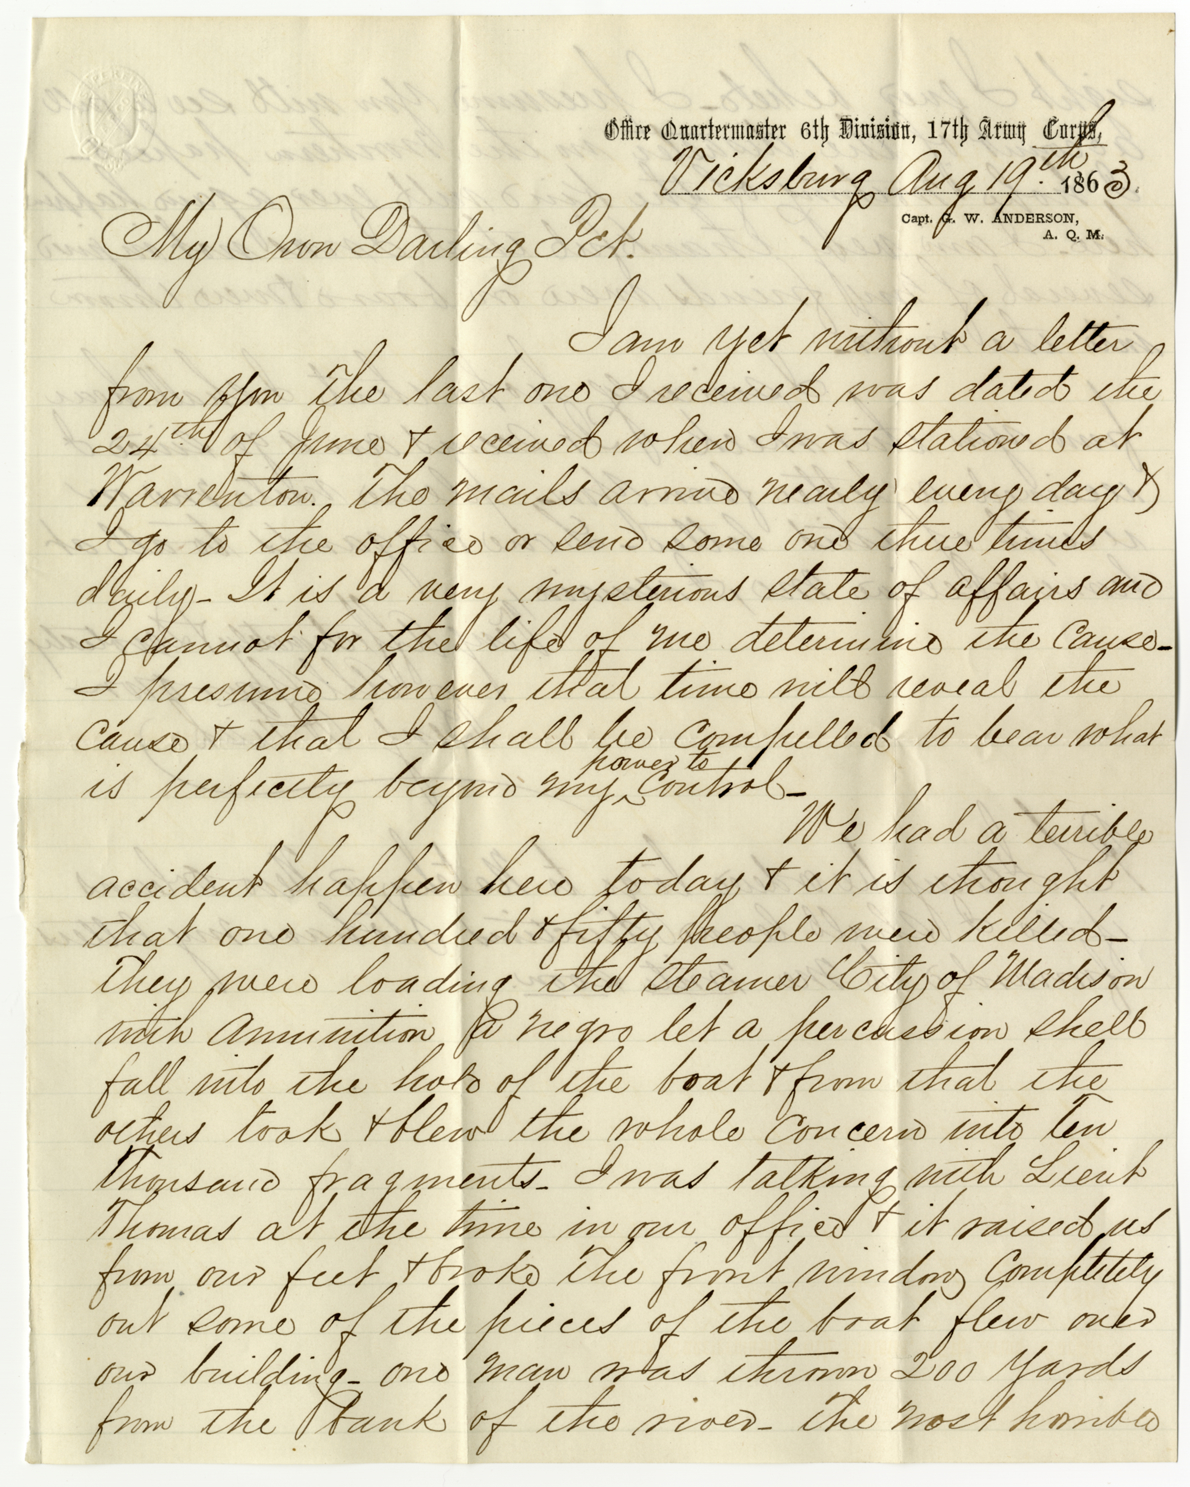 Office Quartermaster 6th Division, 17th Army Corps,
Vicksburg Aug 19th 1863.
Capt. G. W. ANDERSON,
A. Q. M.
My Own Darling Pet.
I am yet without a letter
from you The last one I received was dated the
24th of June & received when I was stationed at
Warrenton. The mails arrive nearly every day &
I go to the office or send some one three times
daily - It is a very mysterious state of affairs and
I cannot for the life of me determine the cause -
I presume however that time will reveal the
cause & that I shall be compelled to bear what
is perfectly beyond my power to control -
We had a terrible
accident happen here today & it is thought
that one hundred & fifty people were killed -
They were loading the steamer City of Madison
with Ammunition a negro let a percussion shell
fall into the hold of the boat & from that the
others took & blew the whole concern into ten
thousand fragments - I was talking with Lieut
Thomas at the time in our office & it raised us
from our feet & broke the front window completely
out some of the pieces of the boat flew over
our building - one man was thrown 200 yards
from the bank of the river - the most horrible